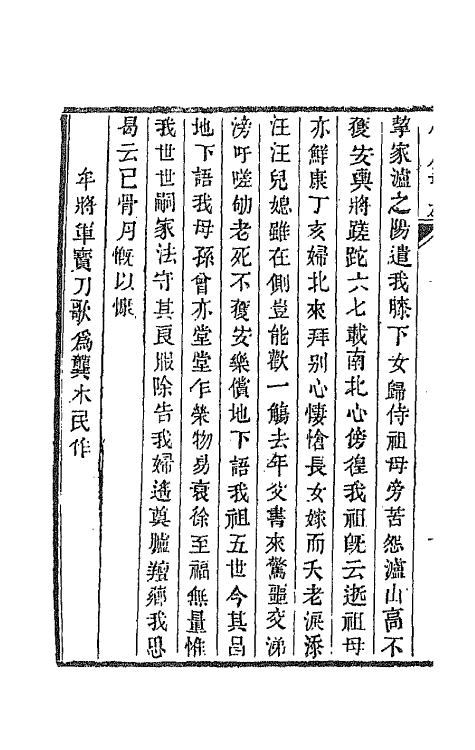 挈家瀘之陽遣我膝下女歸侍祖母旁苦怨瀘山高不
獲安輿將蹉跎六七載南北心傍徨我祖旣云逝祖母
亦鮮康丁亥婦北來拜別心悽愴長女嫁而夭老淚添
汪汪兒媳雖在側豈能歡一觴去年父書來驚噩交涕
滂吁嗟劬老死不獲安樂償地下語我祖五世今其昌
地下語我母孫曾亦堂堂乍榮物易衰徐至福無量惟
我世世嗣家法守其良服除告我婦遙奠臚羶薌我思
曷云已骨月慨以慷
牟將軍寶刀歌爲龔木民作